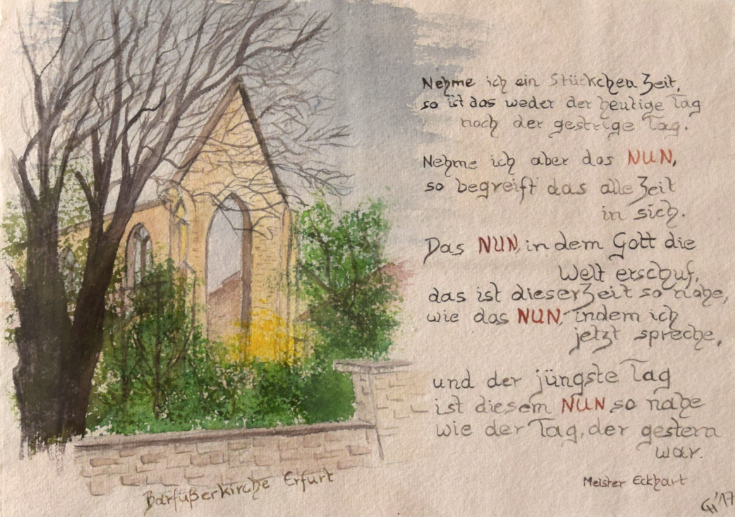 Nehme ich ein Stückchen Zeit,
so ist das weder der heutige Tag
noch der gestrige Tag.
Nehme ich aber das NUN,
so begreift das alle Zeit
in sich.
Das NUN, in dem Gott die
Welt erschuf,
das ist dieser Zeit so nahe,
wie das NUN, indem ich
jetzt spreche,
und der jüngste Tag
ist diesem NUN so nahe
wie der Tag, der gestern
war.
Meister Eckhart
Barfüßerkirche Erfurt
'17